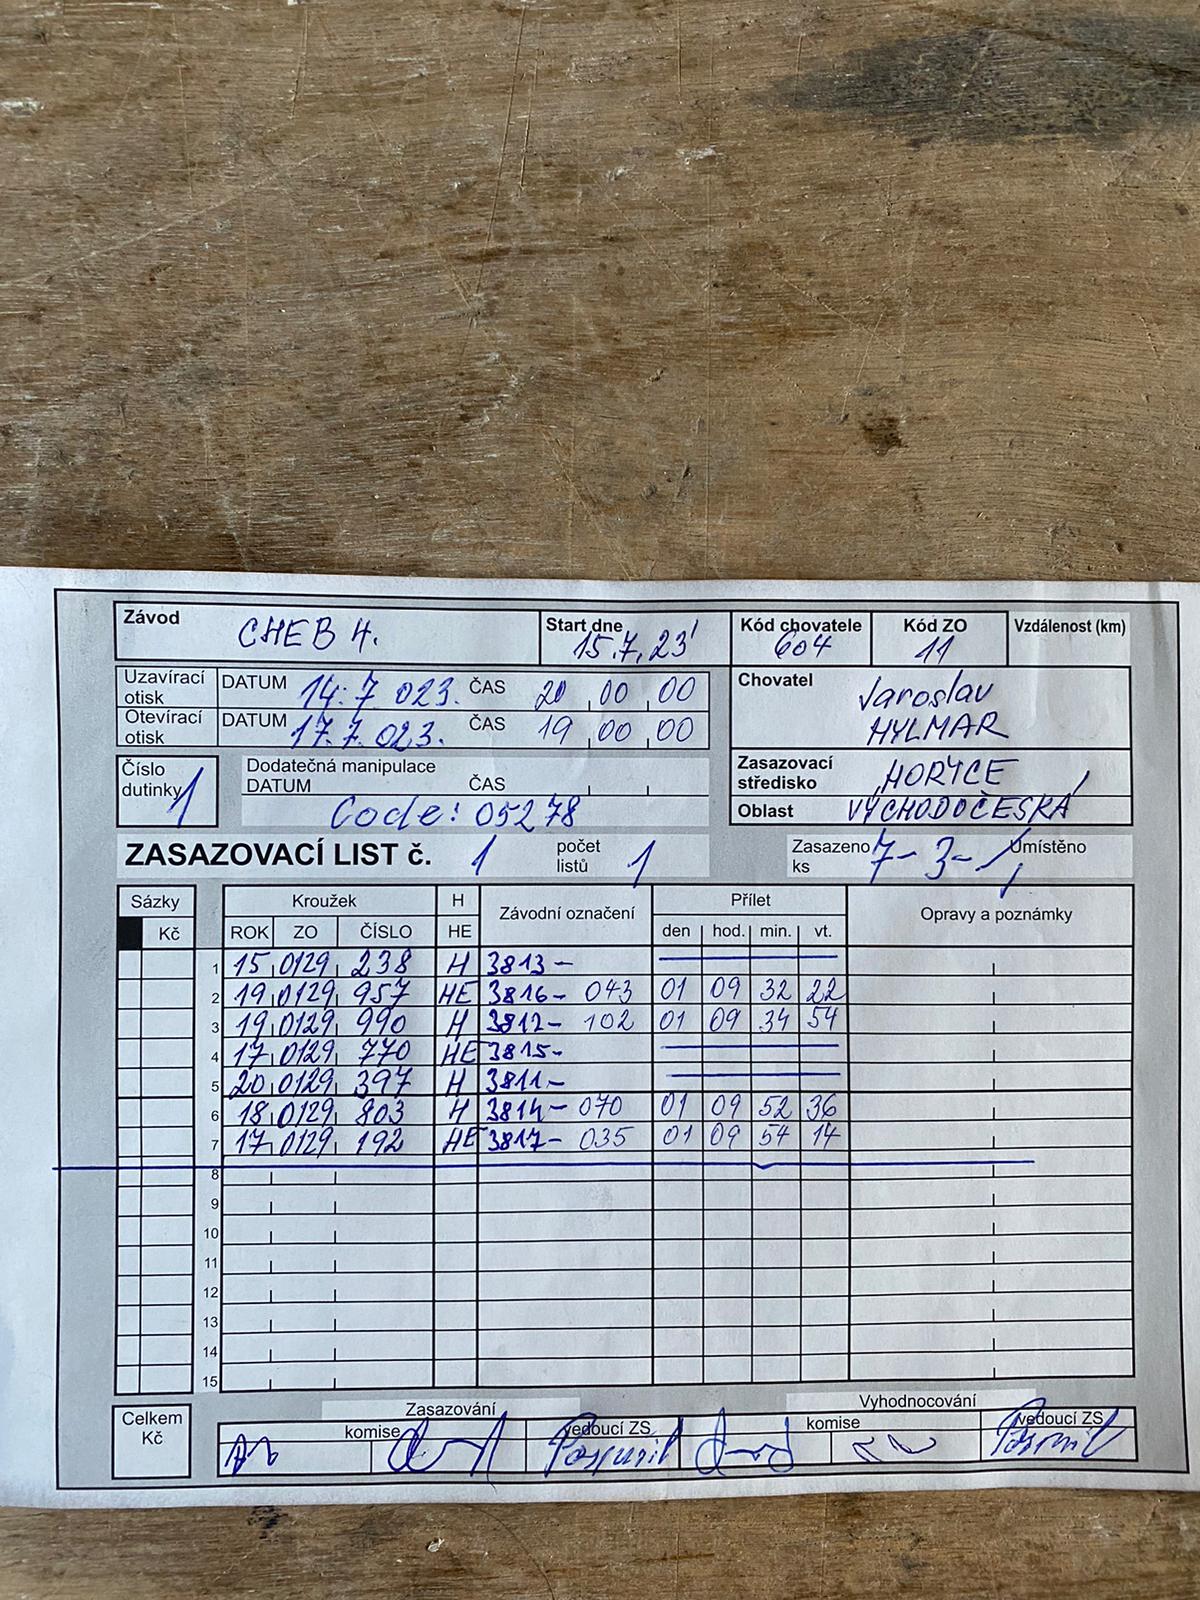 Závod CHEB 4. Start dne 15.7.23' Kód chovatele 604 Kód ZO 11 Vzdálenost (km)
Uzavírací otisk DATUM 14.7 023. ČAS 20 00 00
Otevírací otisk DATUM 17.7. 023. ČAS 19 00 00
Chovatel Jaroslav
HYLMAR
Číslo dutinky 1 Dodatečná manipulace
DATUM ČAS
Code: 05278
Zasazovací středisko HORICE
Oblast VÝCHODOČESKÁ
ZASAZOVACÍ LIST č. 1 počet listů 1 Zasazeno ks 7-3- Umístěno
Sázky Kroužek H Závodní označení Přílet Opravy a poznámky
Kč ROK ZO ČÍSLO HE den hod. min. vt.
1 15 0129 238 H 3813-
2 19 0129 957 HE 3816- 043 01 09 32 22
3 19 0129 990 H 3812- 102 01 09 34 54
4 17 0129 770 HE 3815-
5 20 0129 397 H 3811-
6 18 0129 803 H 3814- 070 01 09 52 36
7 17 0129 192 HE 3817- 035 01 09 54 14
8
9
10
11
12
13
14
15
Celkem Kč
Zasazování Vyhodnocování
komise vedoucí ZS komise vedoucí ZS